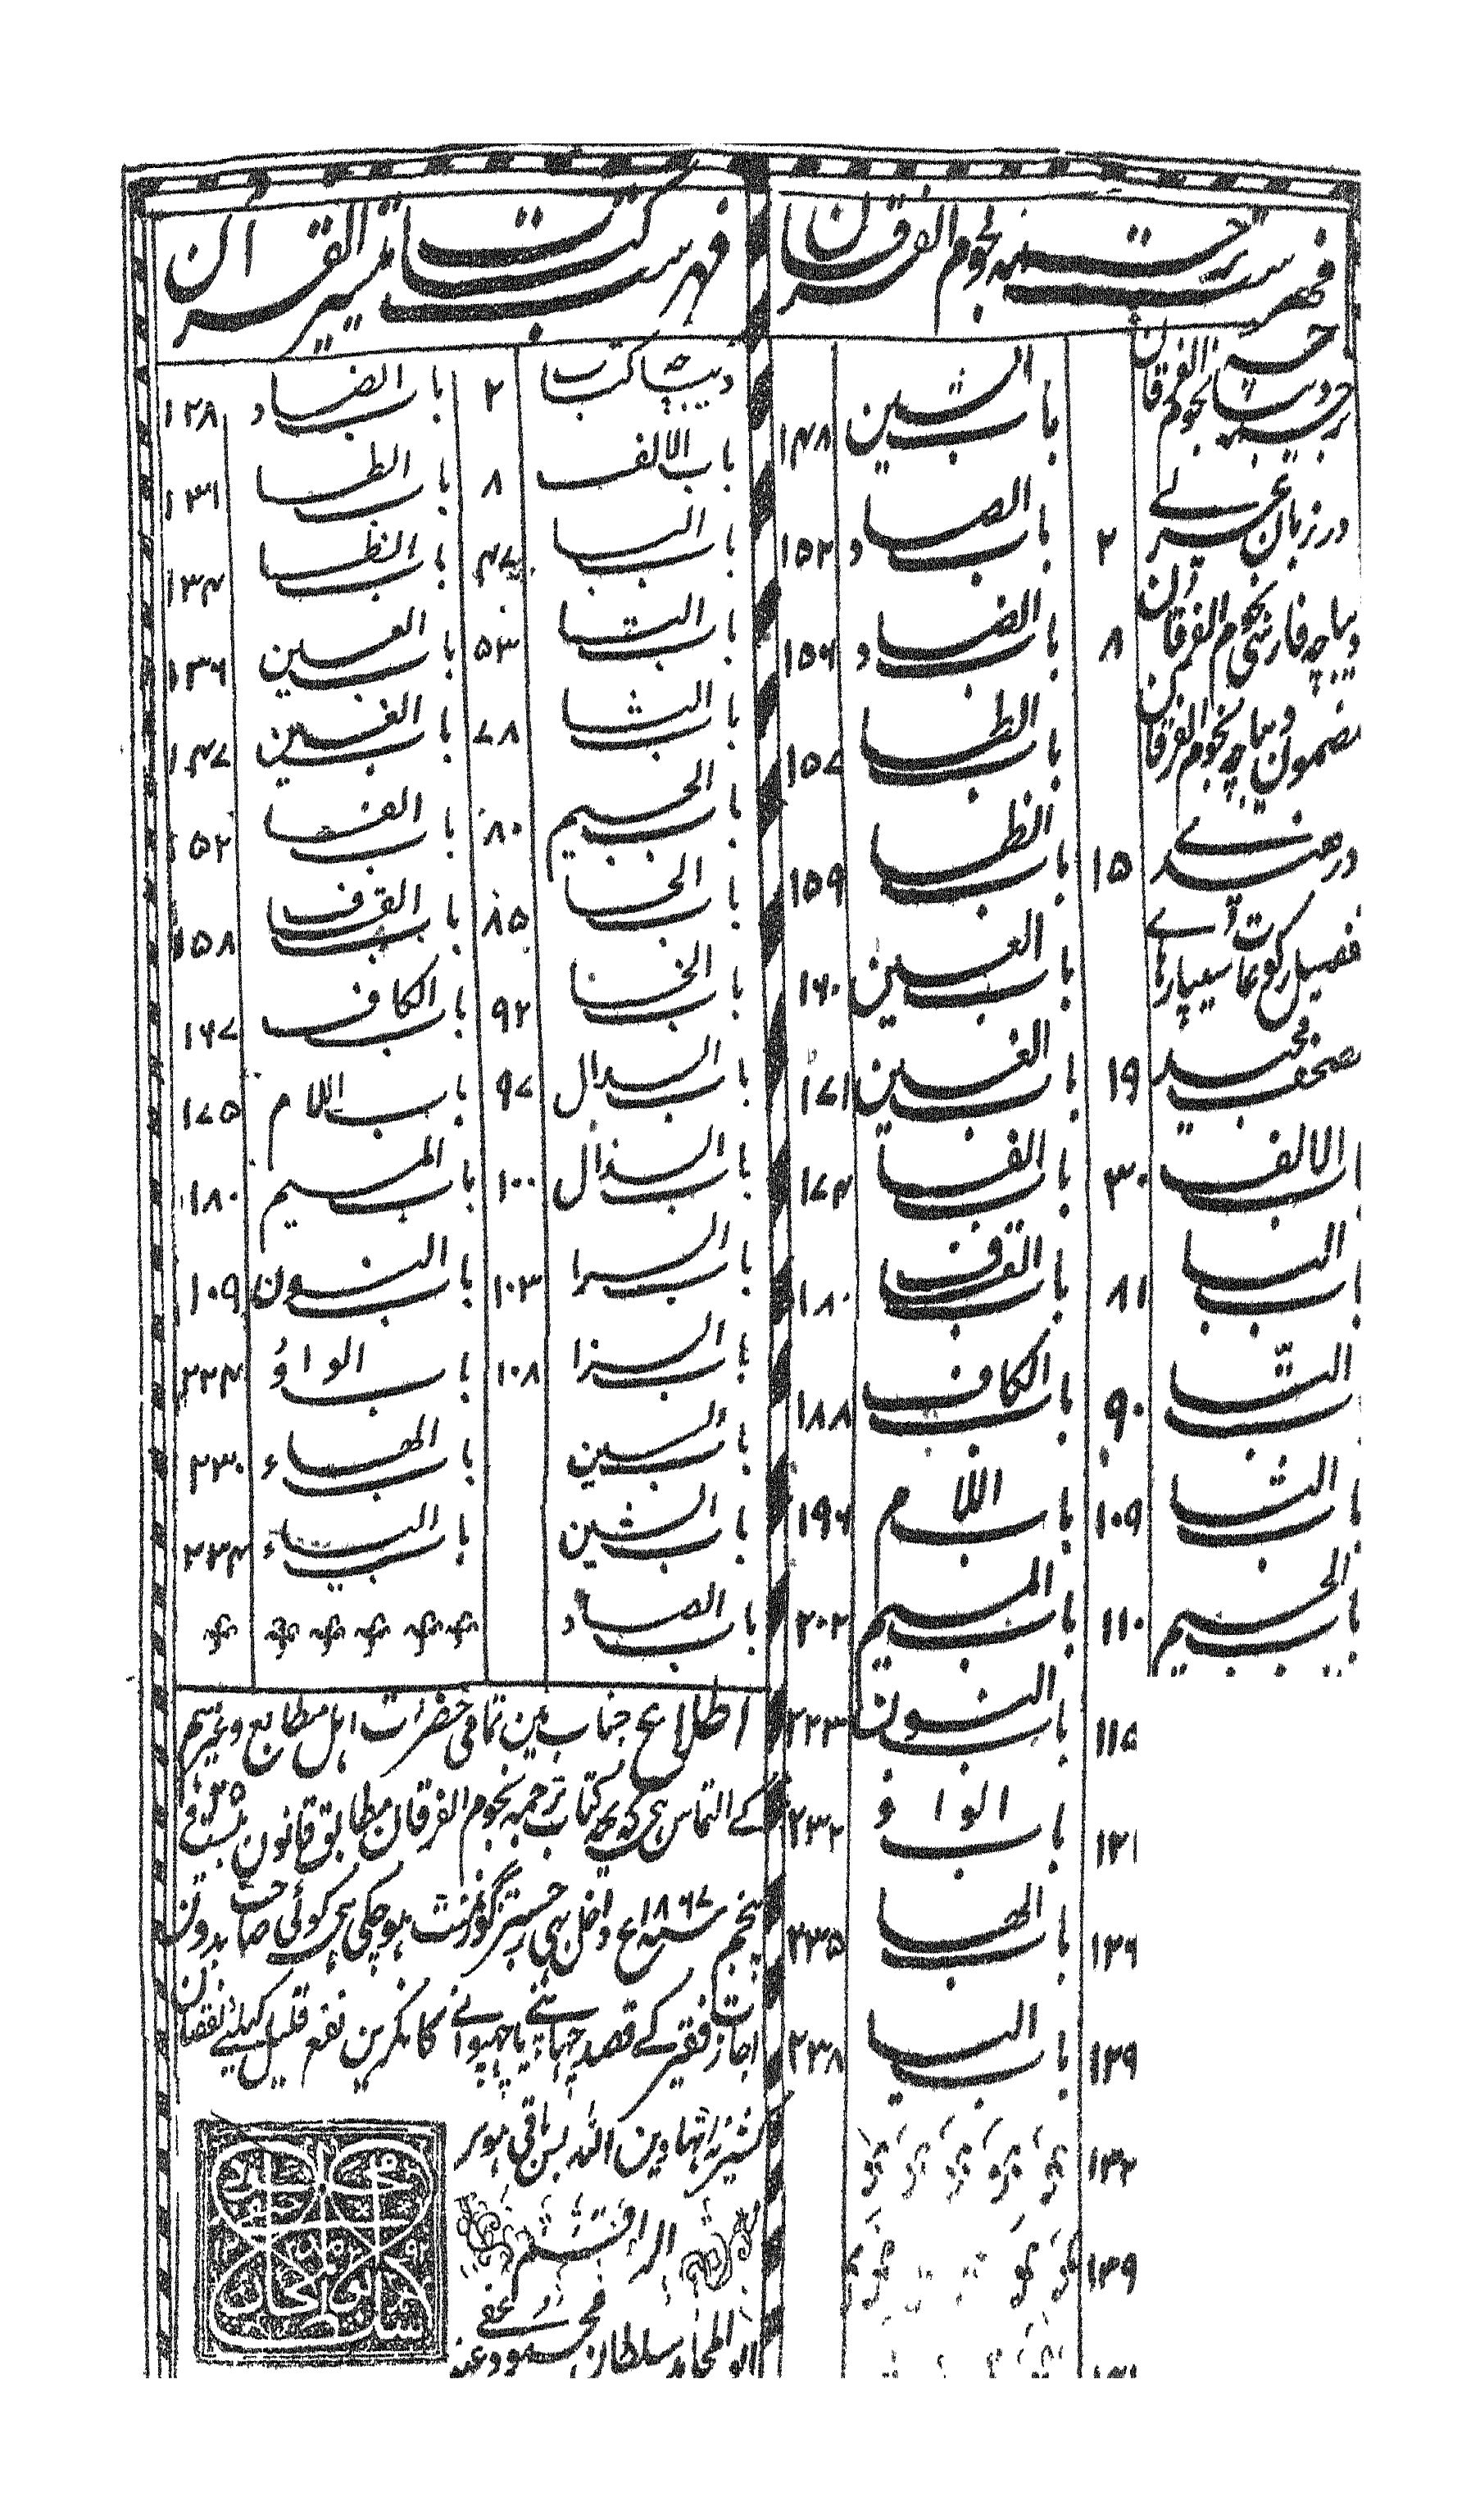 فهرست ترجمہ نجوم الفرقان
ترجمہ دیباچہ نجوم الفرقان
در زبان عربی ۲
دیباچہ فارسی نجوم الفرقان ۸
مضمون دیباچہ نجوم الفرقان
در ہندی ۱۵
تفصیل رکوعات سیپارہای
مصحف مجید ۱۹
باب الالف ۳۰
باب البا ۸۱
باب التا ۹۰
باب الثا ۱۰۹
باب الجیم ۱۱۰
۱۱۵
۱۲۱
۱۲۶
۱۲۹
۱۳۲
۱۳۹
باب الشین ۱۴۸
باب الصاد ۱۵۲
باب الضاد ۱۵۶
باب الطا ۱۵۷
باب الظا ۱۵۹
باب العین ۱۶۰
باب الغین ۱۷۱
باب الفا ۱۷۴
باب القاف ۱۸۰
باب الکاف ۱۸۸
باب اللام ۱۹۶
باب المیم ۲۰۲
باب النون ۲۲۳
باب الواو ۲۳۲
باب الها ۲۳۵
باب الیا ۲۳۸
فہرست کتاب تیسیر القرآن
دیباچہ کتاب ۲
باب الالف ۸
باب البا ۴۷
باب التا ۵۳
باب الثا ۷۸
باب الجیم ۸۰
باب الحا ۸۵
باب الخا ۹۲
باب الدال ۹۷
باب الذال ۱۰۰
باب الرا ۱۰۳
باب الزا ۱۰۸
باب السین
باب الشین
باب الصاد
باب الضاد ۱۲۸
باب الطا ۱۳۱
باب الظا ۱۳۴
باب العین ۱۳۶
باب الغین ۱۴۷
باب الفا ۱۵۲
باب القاف ۱۵۸
باب الکاف ۱۶۷
باب اللام ۱۷۵
باب المیم ۱۸۰
باب النون ۱۰۹
باب الواو ۲۲۴
باب الهاء ۲۳۰
باب الیاء ۲۳۴
اطلاع جناب مین تمامی حضرات اہل مطابع وغیرہم
کے التماس ہی کہ یہہ کتاب ترجمہ نجوم الفرقان مطابق قانون بست و
پنجم سنہ ۱۸۶۷ع داخل بہی رجستر گورنمنٹ ہوچکی ہی کوئی صاحب بدون
اجازت فقیر کے قصد چہاپنے یا چہپوانے کا نکرین نفع قلیل کیلئے نقصان
کثیر نہ اٹہاوین اللہ بس باقی ہوس
الراقم
ابو المحامد سلطان محمود عفی عنہ